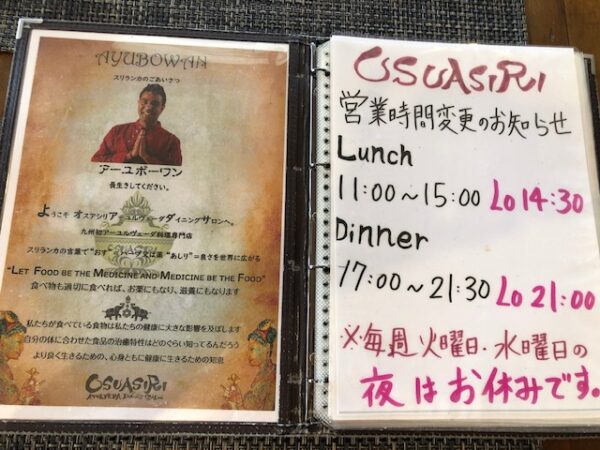 AYUBOWAN
スリランカのごあいさつ
アーユボーワン
長生きしてください。
ようこそ オスアシリア ユルヴェーダダイニングサロンへ。
九州初アーユルヴェーダ料理専門店
スリランカの言葉で"おす"
"あしり"=良さを世界に広がる
"LET FOOD BE THE MEDICINE AND MEDICINE BE THE FOOD"
食べ物も適切に食べれば、お薬にもなり、滋養にもなります
私たちが食べている食物は私たちの健康に大きな影響を及ぼします
自分の体に合わせた食品の治癒特性はどのぐらい知ってるんだろう
より良く生きるための、心身ともに健康に生きるための知恵
OSUASIRI
OSUASIRI
営業時間変更のお知らせ
Lunch
11:00〜15:00 Lo 14:30
Dinner
17:00〜21:30 Lo 21:00
※毎週火曜日・水曜日の
夜はお休みです。